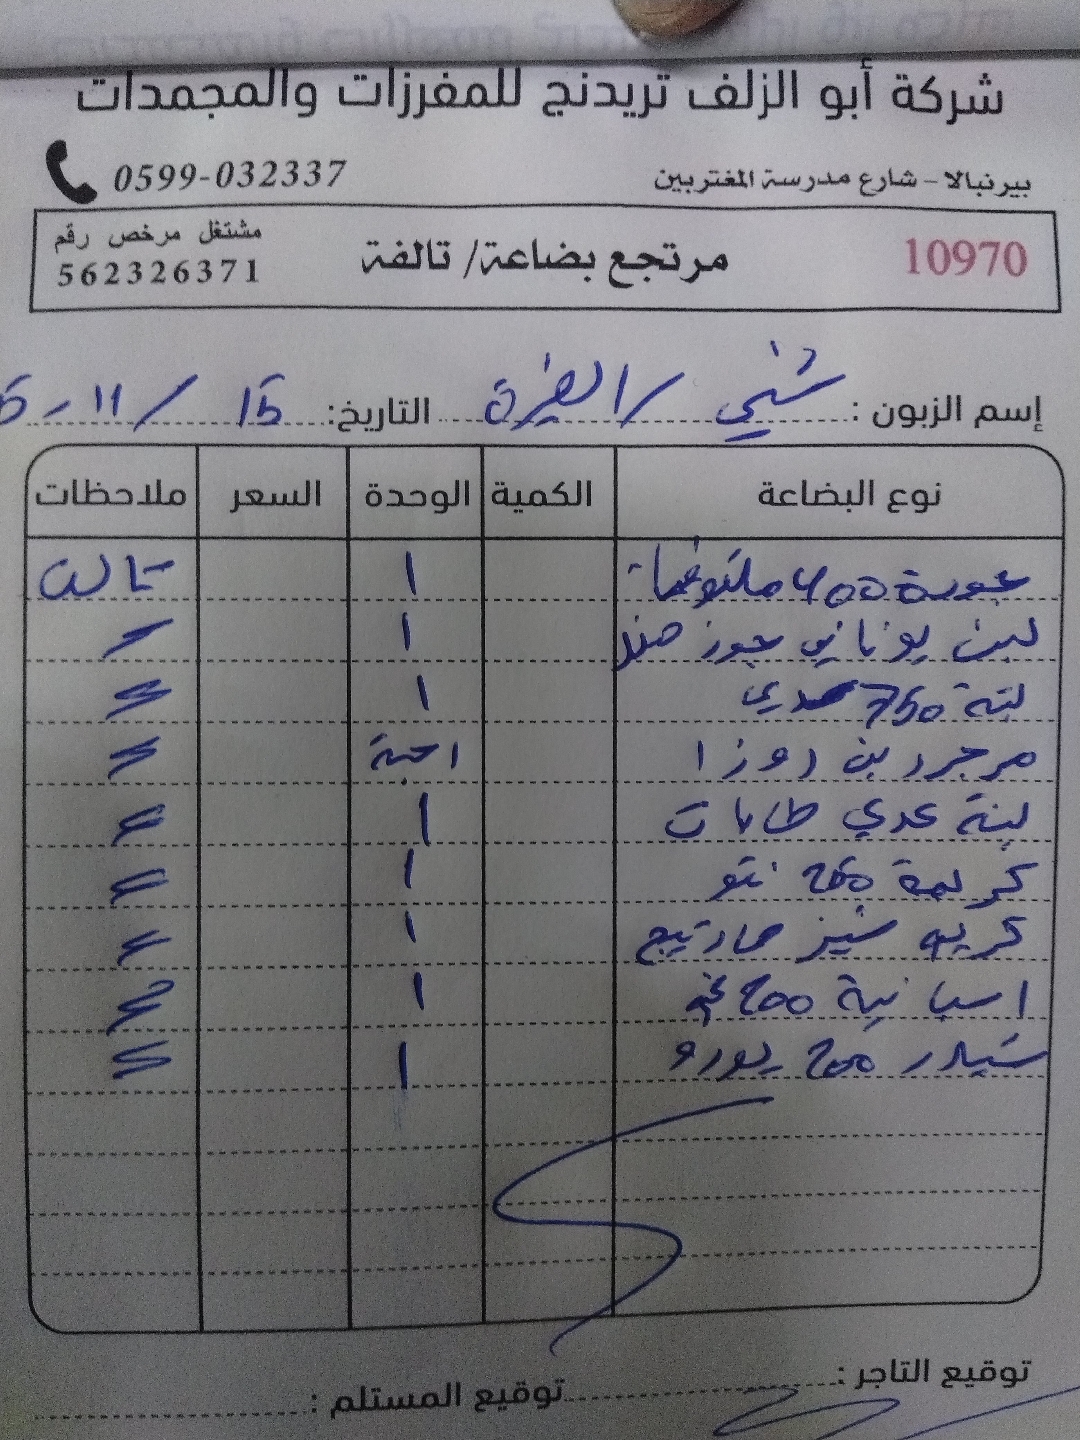 شركة أبو الزلف تريدنج للمفرزات والمجمدات
بيرنبالا - شارع مدرسة المغتربين 0599-032337
10970 مرتجع بضاعة/ تالفة مشتغل مرخص رقم
562326371
إسم الزبون : / التاريخ: 15 / 11 -
نوع البضاعة الكمية الوحدة السعر ملاحظات
400 1 تالف
لبن يوناني جوز هند 1 〃
لبنة 750 1 〃
1 حبة 〃
لبنة عدي طابات 1 〃
كريمة 1 〃
كريم تشيز 1 〃
اسبانية 200 غم 1 〃
شيدر 200 يورو 1 〃
توقيع التاجر : توقيع المستلم :